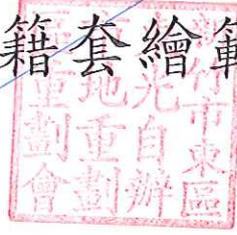 籍套繪
竹市東區
光自辦
地重劃
重劃會